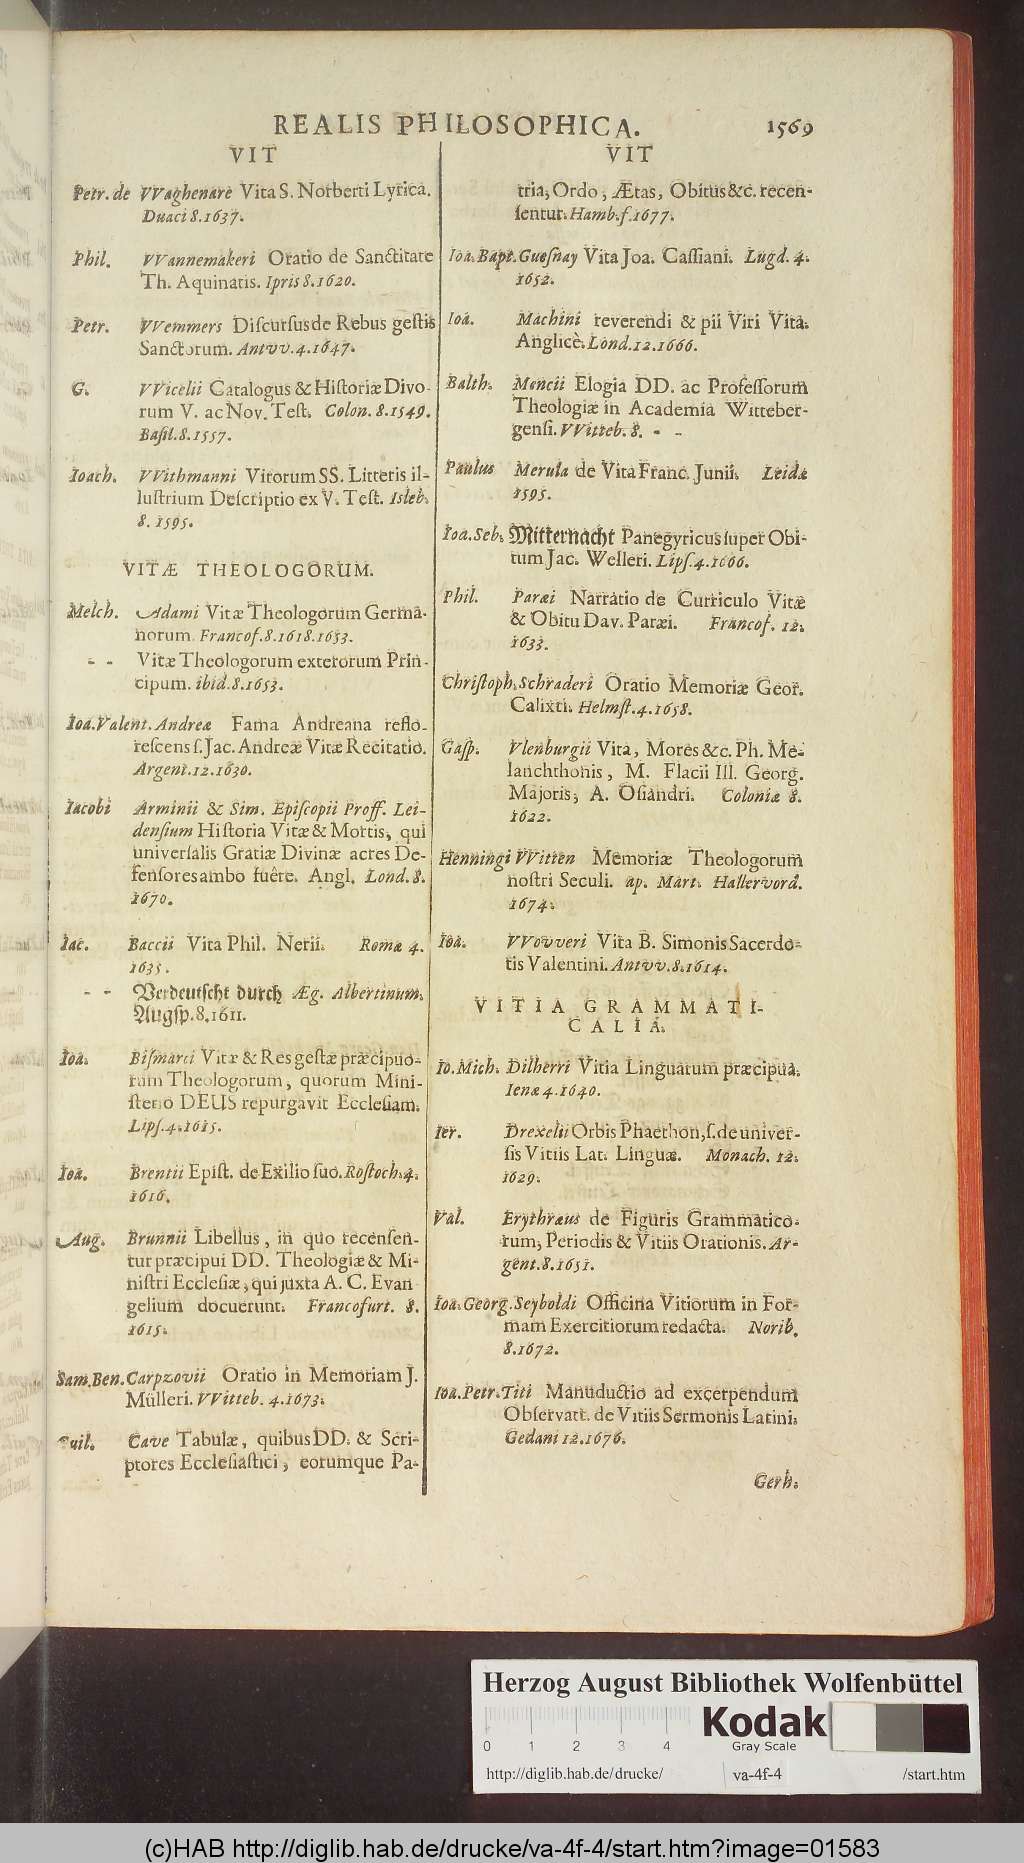 REALIS PHILOSOPHICA. 1569
VIT
Petr. de VVaghenare Vita S. Norberti Lyrica.
Duaci 8. 1637.
Phil. VVannemakeri Oratio de Sanctitate
Th. Aquinatis. Ipris 8. 1620.
Petr. VVemmers Discursus de Rebus gestis
Sanctorum. Antvv. 4. 1647.
G. VVicelii Catalogus & Historiæ Divo-
rum V. ac Nov. Test. Colon. 8. 1549.
Basil. 8. 1557.
Ioach. VVithmanni Virorum SS. Litteris il-
lustrium Descriptio ex V. Test. Isleb.
8. 1595.
VITÆ THEOLOGORUM.
Melch. Adami Vitæ Theologorum Germa-
norum. Francof. 8. 1618. 1633.
- - Vitæ Theologorum exterorum Prin-
cipum. ibid. 8. 1653.
Ioa. Valent. Andreæ Fama Andreana reflo-
rescens s. Jac. Andreæ Vitæ Recitatio.
Argent. 12. 1630.
Iacobi Arminii & Sim. Episcopii Proff. Lei-
densium Historia Vitæ & Mortis, qui
universalis Gratiæ Divinæ acres De-
fensores ambo fuêre. Angl. Lond. 8.
1670.
Iac. Baccii Vita Phil. Nerii. Romæ 4.
1635.
- - Verdeutscht durch Æg. Albertinum.
Augsp. 8. 1611.
Ioa. Bismarci Vitæ & Res gestæ præcipuo-
rum Theologorum, quorum Mini-
sterio DEUS repurgavit Ecclesiam.
Lips. 4. 1615.
Ioa. Brentii Epist. de Exilio suo. Rostoch. 4.
1616.
Aug. Brunnii Libellus, in quo recensen-
tur præcipui DD. Theologiæ & Mi-
nistri Ecclesiæ, qui juxta A. C. Evan
gelium docuerunt. Francofurt. 8.
1615.
Sam. Ben. Carpzovii Oratio in Memoriam J.
Mülleri. VVitteb. 4. 1673.
Guil. Cave Tabulæ, quibus DD. & Scri-
ptores Ecclesiastici, eorumque Pa-
VIT
tria, Ordo, Ætas, Obitus &c. recen-
sentur. Hamb. f. 1677.
Ioa. Bapt. Guesnay Vita Joa. Cassiani. Lugd. 4.
1652.
Ioa. Machini reverendi & pii Viri Vita.
Anglicè. Lond. 12. 1666.
Balth. Mencii Elogia DD. ac Professorum
Theologiæ in Academia Witteber-
gensi. VVitteb. 8. - -
Paulus Merula de Vita Franc. Junii. Leidæ
1595.
Ioa. Seb. Mitternacht Panegyricus super Obi-
tum Jac. Welleri. Lips. 4. 1666.
Phil. Paræi Narratio de Curriculo Vitæ
& Obitu Dav. Paræi. Francof. 12.
1633.
Christoph. Schraderi Oratio Memoriæ Geor.
Calixti. Helmst. 4. 1658.
Gasp. Vlenburgii Vita, Mores &c. Ph. Me-
lanchthonis, M. Flacii Ill. Georg.
Majoris, A. Osiandri. Coloniæ 8.
1622.
Henningi VVitten Memoriæ Theologorum
nostri Seculi. ap. Mart. Hallervord.
1674.
Ioa. VVovveri Vita B. Simonis Sacerdo-
tis Valentini. Antvv. 8. 1614.
VITIA GRAMMATI-
CALIA.
Io. Mich. Dilherri Vitia Linguarum præcipua.
Ienæ 4. 1640.
Ier. Drexelii Orbis Phaethon, s. de univer-
sis Vitiis Lat. Linguæ. Monach. 12.
1629.
Val. Erythræus de Figuris Grammatico-
rum, Periodis & Vitiis Orationis. Ar-
gent. 8. 1651.
Ioa. Georg. Seyboldi Officina Vitiorum in For-
mam Exercitiorum redacta. Norib.
8. 1672.
Ioa. Petr. Titi Manuductio ad excerpendum
Observatt. de Vitiis Sermonis Latini.
Gedani 12. 1676.
Gerh.
Herzog August Bibliothek Wolfenbüttel
0 1 2 3 4
Kodak
Gray Scale
http://diglib.hab.de/drucke/ va-4f-4 /start.htm
(c)HAB http://diglib.hab.de/drucke/va-4f-4/start.htm?image=01583